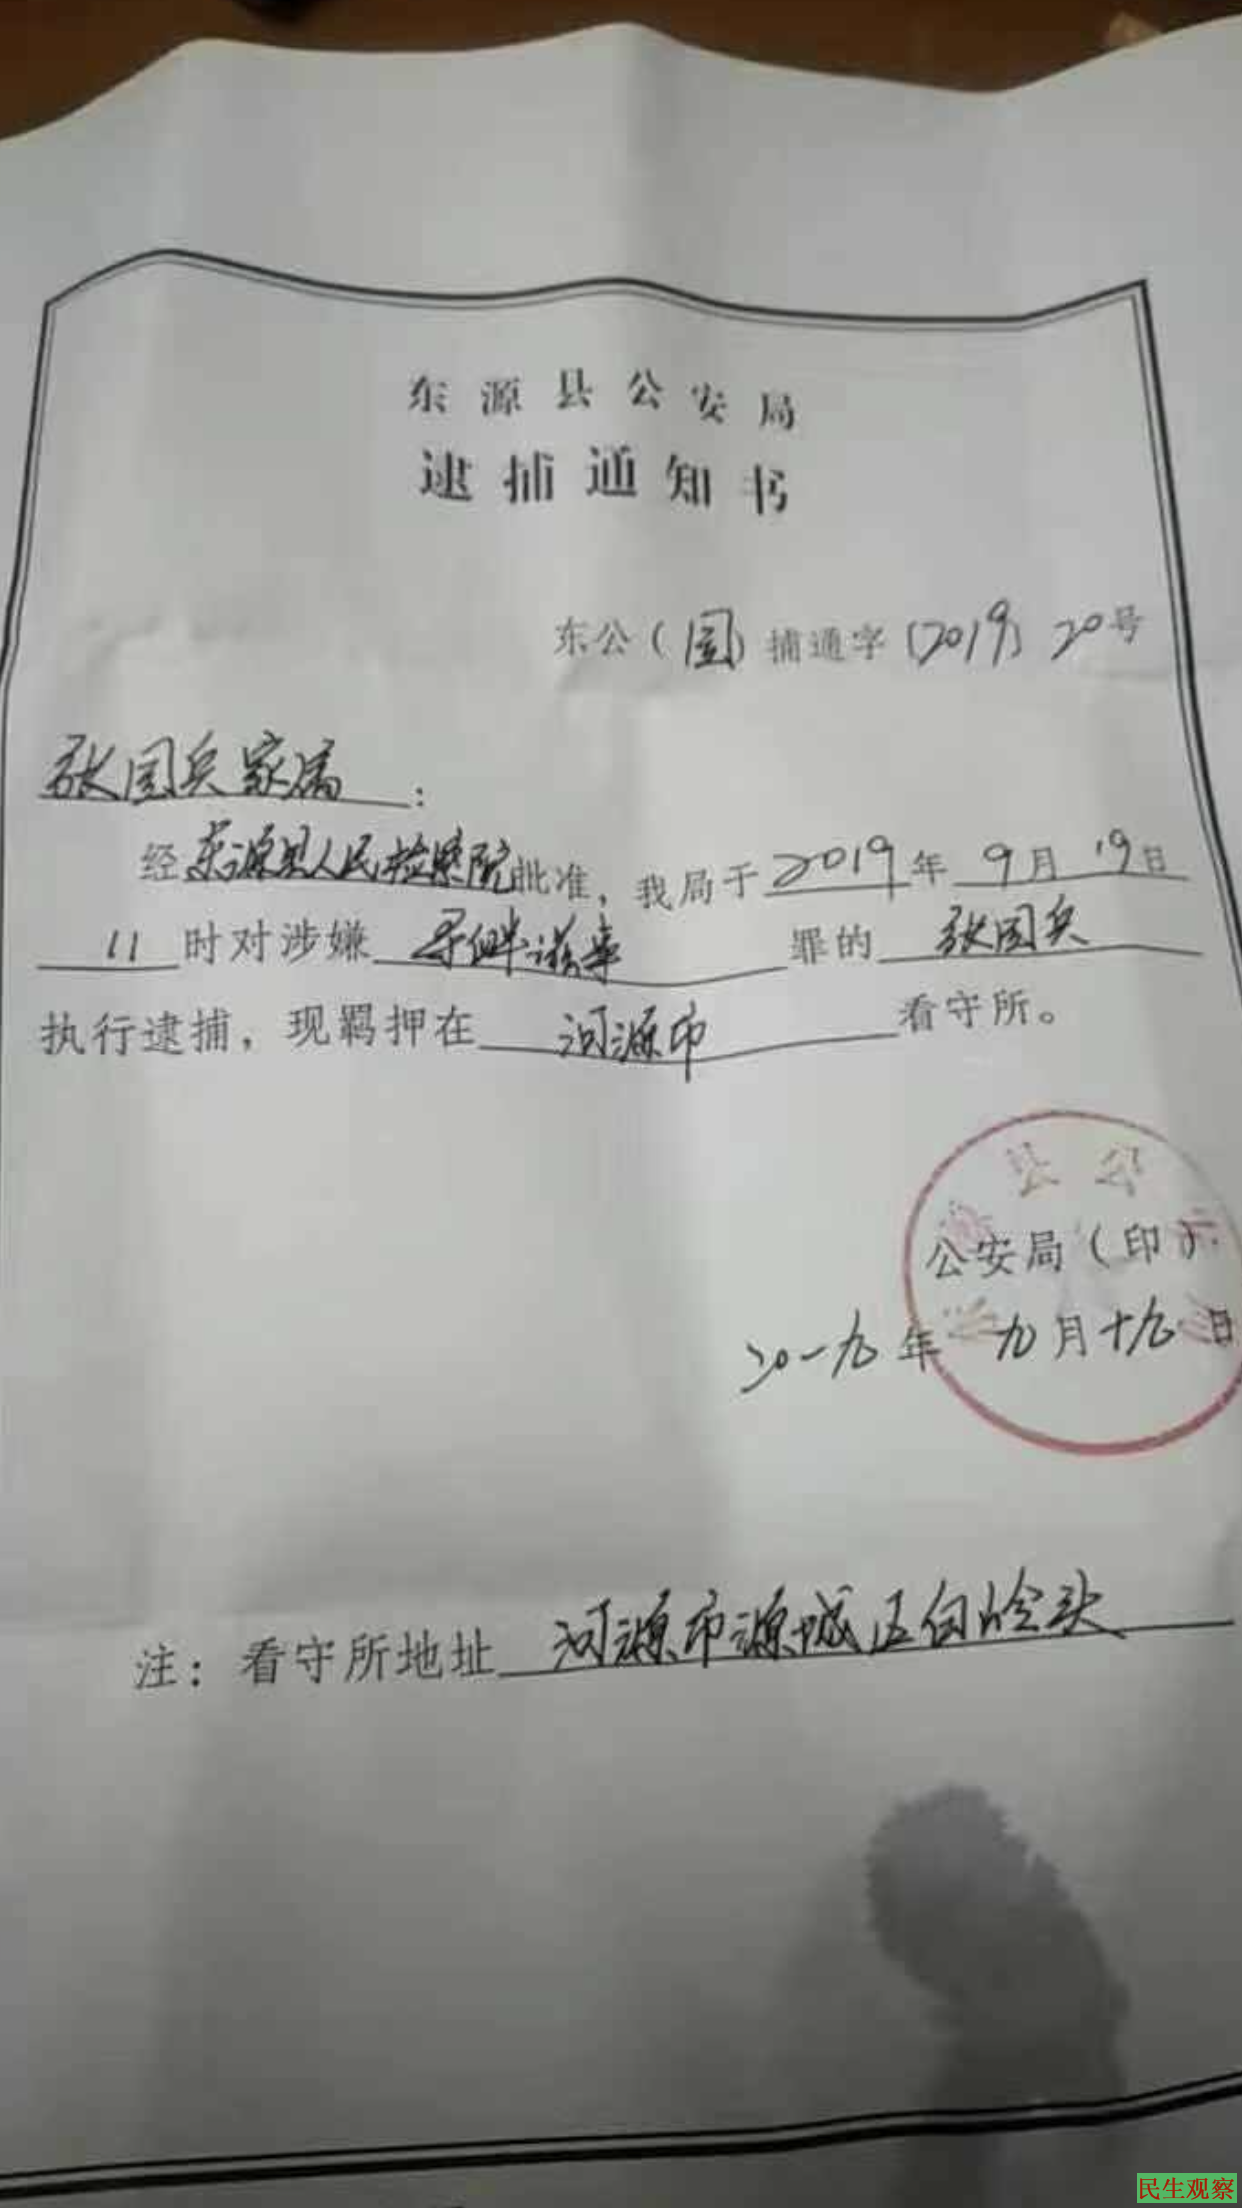 东源县公安局
逮捕通知书
东公（国）捕通字〔2019〕20号
张国兵家属：
经东源县人民检察院批准，我局于2019年9月19日
11时对涉嫌寻衅滋事罪的张国兵
执行逮捕，现羁押在河源市看守所。
县公
公安局（印）
二〇一九年九月十九日
注：看守所地址河源市源城区白岭头
民生观察